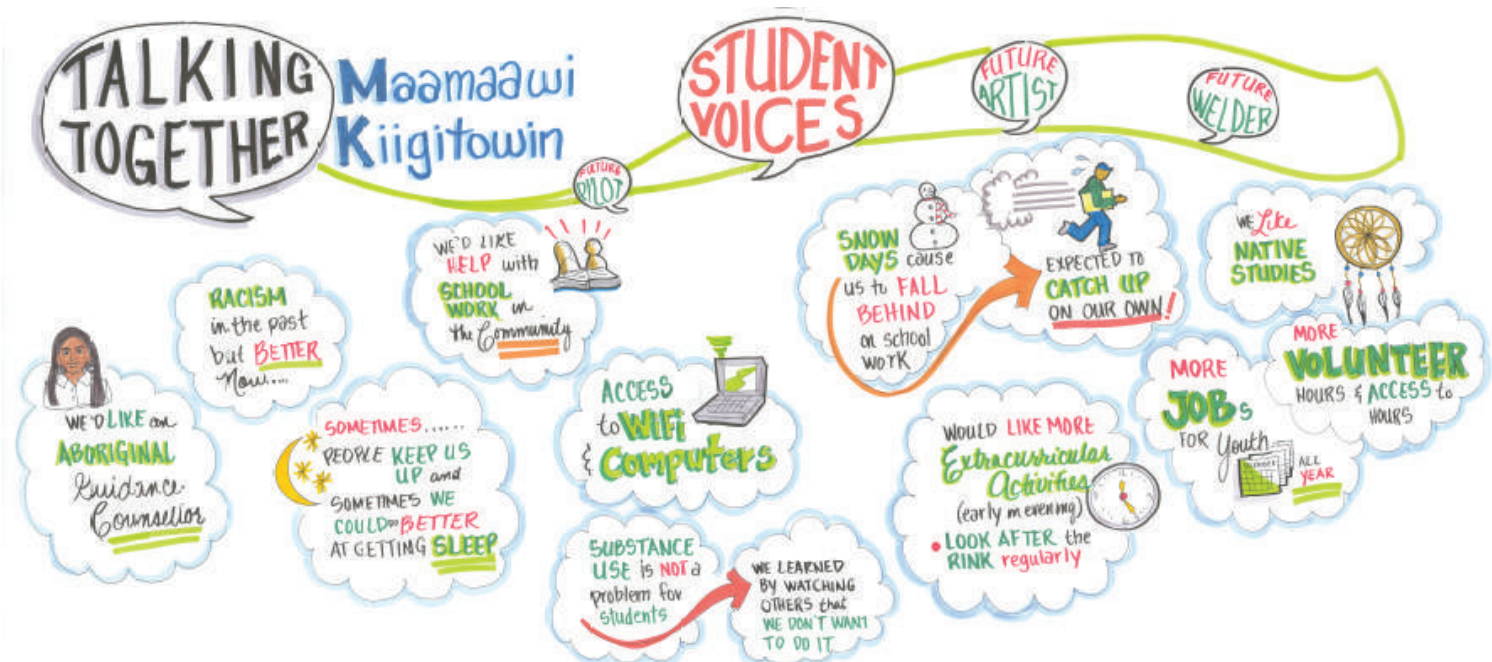 TALKING
TOGETHER
Maamaawi
Kiigitowin
FUTURE
PILOT
STUDENT
VOICES
FUTURE
ARTIST
FUTURE
WELDER
WE'D LIKE an
ABORIGINAL
Guidance
Counsellor
RACISM
in the past
but BETTER
Now....
SOMETIMES......
PEOPLE KEEP US
UP and
SOMETIMES WE
COULD do BETTER
AT GETTING SLEEP
WE'D LIKE
HELP with
SCHOOL
WORK in
the Community
ACCESS
to WIFI
& Computers
SUBSTANCE
USE is NOT a
problem for
students
WE LEARNED
BY WATCHING
OTHERS that
WE DON'T WANT
TO DO IT
SNOW
DAYS cause
us to FALL
BEHIND
on school
WORK
EXPECTED TO
CATCH UP
ON OUR OWN!
WOULD LIKE MORE
Extracurricular
Activities
(early in evening)
• LOOK AFTER the
RINK regularly
WE Like
NATIVE
STUDIES
MORE
VOLUNTEER
HOURS & ACCESS to
HOURS
MORE
JOBs
FOR Youth
ALL
YEAR